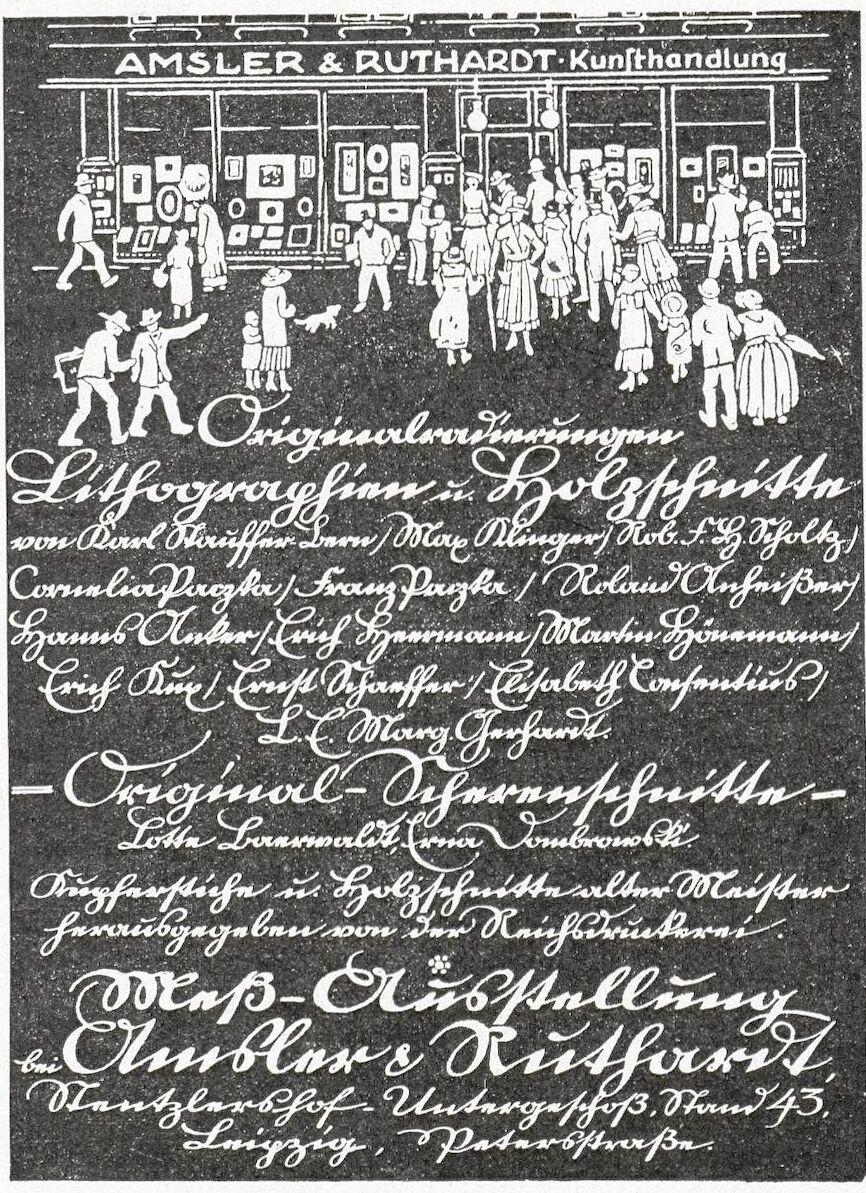 AMSLER & RUTHARDT · Kunsthandlung
Originalradierungen
Lithographien u. Holzschnitte
von Karl Stauffer-Bern / Max Klinger / Rob. F. K. Scholtz /
Cornelia Paczka / Franz Paczka / Roland Anheißer /
Hanns Anker / Erich Heermann / Martin Hönemann /
Erich Kux / Ernst Schaeffer / Elisabeth Consentius /
L. E. Marg. Gerhardt.
— Original-Scherenschnitte —
Lotte Baerwaldt, Erna Dombrowski.
Kupferstiche u. Holzschnitte alter Meister
herausgegeben von der Reichsdruckerei.
Meß-Ausstellung
bei Amsler & Ruthardt,
Stentzlershof-Untergeschoß, Stand 43,
Leipzig, Petersstraße.